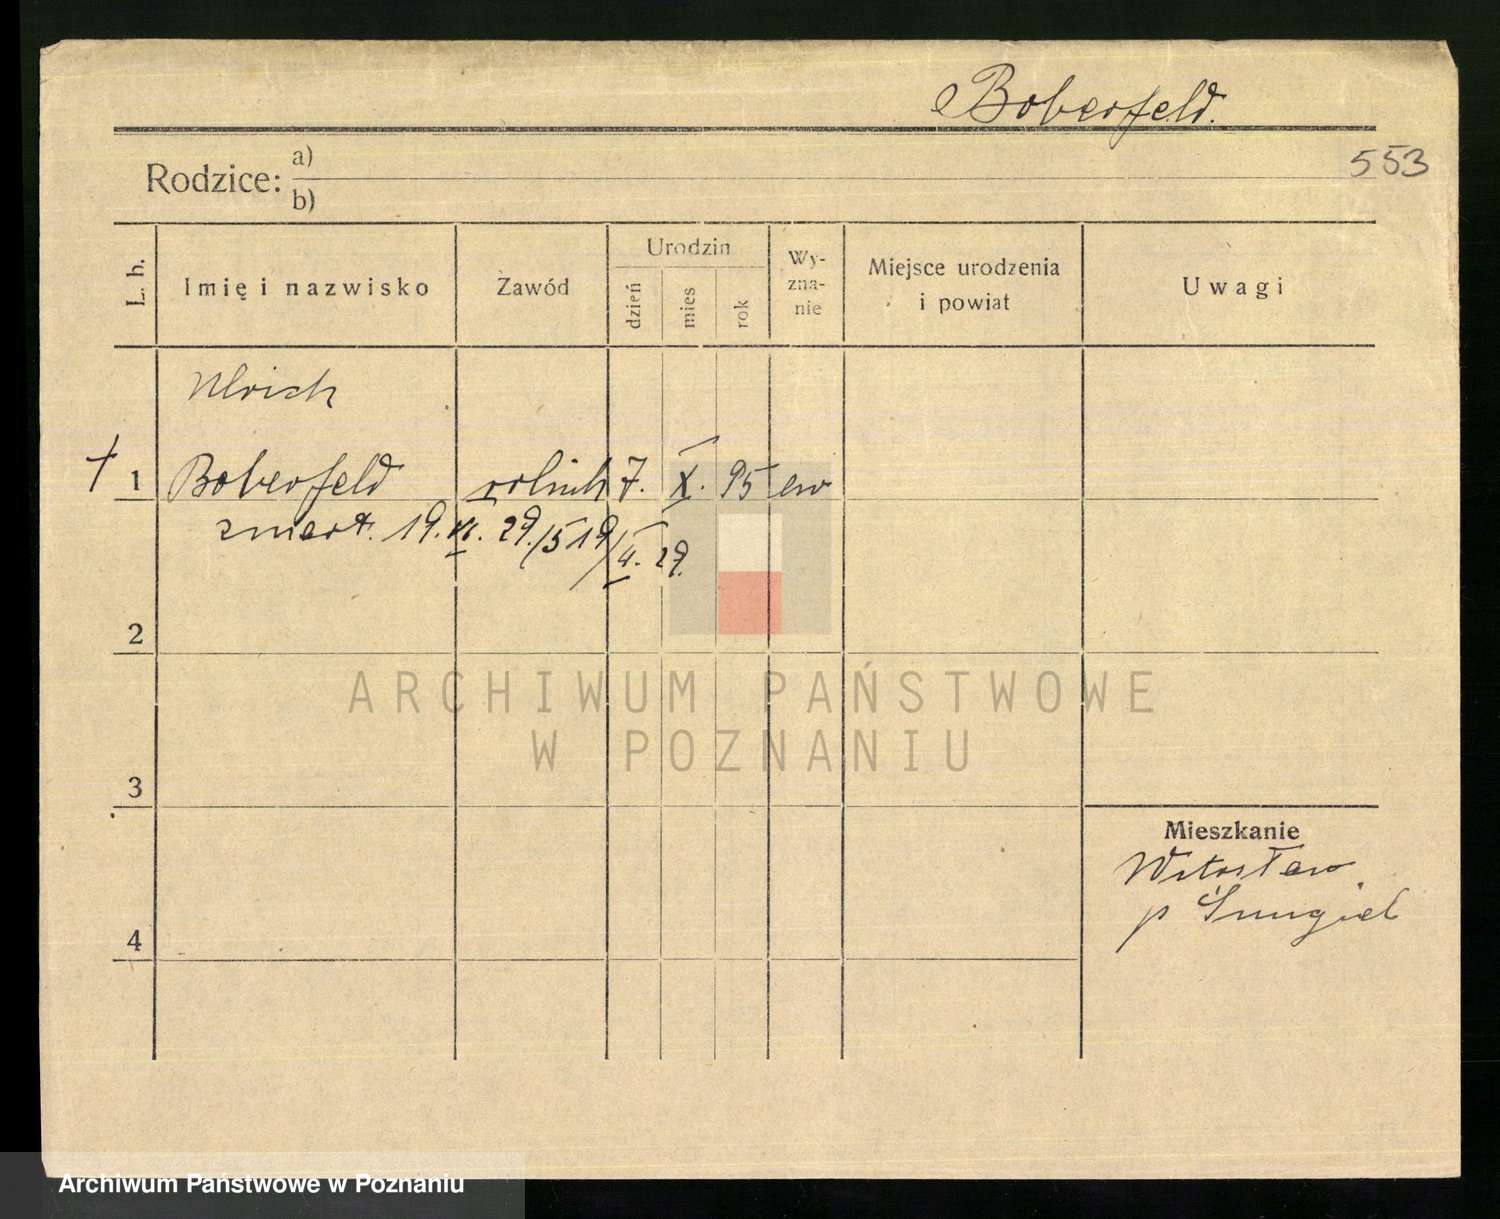 Boberfeld.
553
Rodzice: a)
b)
L. b. Imię i nazwisko Zawód Urodzin dzień mies rok Wy-zna-nie Miejsce urodzenia i powiat Uwagi
Ulrich
+ 1 Boberfeld rolnik 7. X. 95 ew
zmarł. 19. II. 29. /519/II. 29.
2
ARCHIWUM PAŃSTWOWE
W POZNANIU
3
Mieszkanie
Witosław
p Śmigiel
4
Archiwum Państwowe w Poznaniu